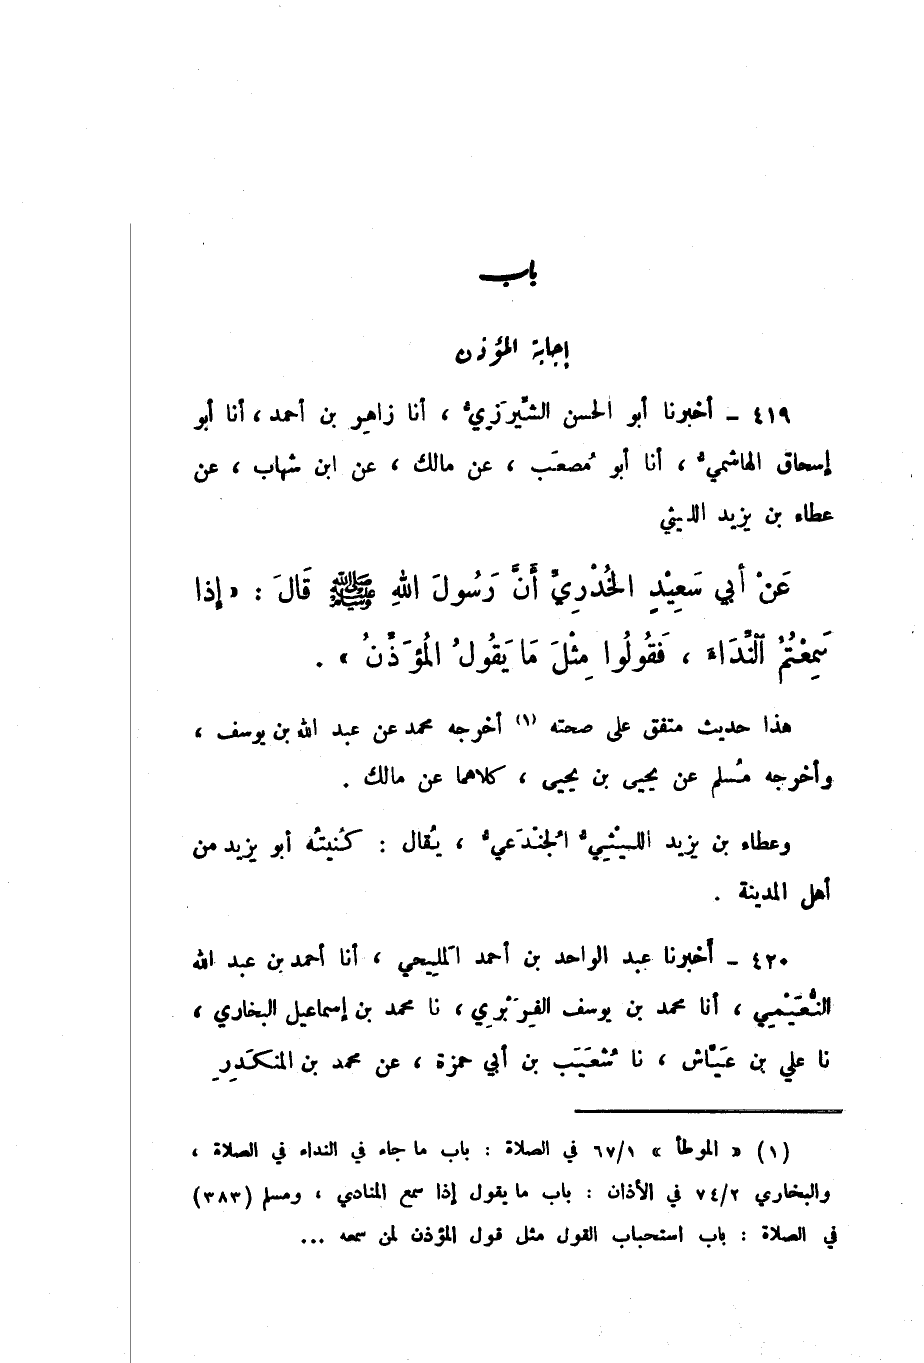 باب
إجابة المؤذن
٤١٩ – أخبرنا أبو الحسن الشِّيرَزيُّ ، أنا زاهر بن أحمد ، أنا أبو
إسحاق الهاشميُّ ، أنا أبو مُصعَب ، عن مالك ، عن ابن شهاب ، عن
عطاء بن يزيد الليثي
عَنْ أَبي سَعِيْدٍ الخُدْرِيِّ أَنَّ رَسُولَ اللهِ ﷺ قَالَ : « إِذا
سَمِعْتُمْ ٱلنِّدَاءَ ، فَقُولُوا مِثْلَ مَا يَقُولُ المُؤَذِّنُ » .
هذا حديث متفق على صحته (١) أخرجه محمد عن عبد الله بن يوسف ،
وأخرجه مُسلم عن يحيى بن يحيى ، كلاهما عن مالك .
وعطاء بن يزيد اللَّيْثيُّ الجُنْدَعيُّ ، يُقال : كُنيتُه أبو يزيد من
أهل المدينة .
٤٢٠ – أَخبرنا عبد الواحد بن أحمد المَلِيحي ، أنا أحمد بن عبد الله
النُّعَيْمي ، أنا محمد بن يوسف الفِرَبْري ، نا محمد بن إسماعيل البخاري ،
نا علي بن عَيَّاش ، نا شُعَيَب بن أبي حمزة ، عن محمد بن المنكَدِرِ
(١) « الموطأ » ٦٧/١ في الصلاة : باب ما جاء في النداء في الصلاة ،
والبخاري ٧٤/٢ في الأذان : باب ما يقول إذا سمع المنادي ، ومسلم (٣٨٣)
في الصلاة : باب استحباب القول مثل قول المؤذن لمن سمعه ...